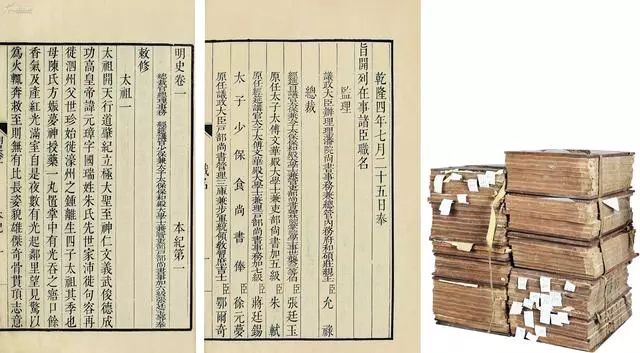 乾隆四年七月二十五日奉
旨開列在事諸臣職名
監理
議政大臣辦理理藩院尚書事務兼總管內務府和碩莊親王臣允祿
總裁
經筵日講官 臣張廷玉
原任太子太傅文華殿大學士兼吏部尚書事加五級臣朱軾
原任經筵講官太子太傅文華殿大學士兼理戶部尚書事務加七級臣蔣廷錫
太子少保食尚書俸臣徐元夢
原任議政大臣戶部尚書管理三庫兼步軍統領教習庶吉士臣鄂爾奇
職名
明史卷一 本紀第一
總裁官總理事務經筵講官少保兼太子太保保和殿大學士兼管吏部戶部尚書事加六級張廷玉等奉
敕修
太祖一
太祖開天行道肇紀立極大聖至神仁文義武俊德成
功高皇帝諱元璋字國瑞姓朱氏先世家沛徙句容再
徙泗州父世珍始徙濠州之鍾離生四子太祖其季也
母陳氏方娠夢神授藥一丸置掌中有光吞之寤口餘
香氣及產紅光滿室自是夜數有光起鄰里望見驚以
為火輒奔救至則無有比長姿貌雄傑奇骨貫頂志意
本紀一